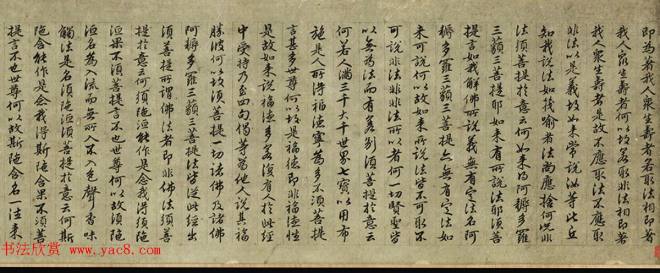 即為著我人眾生壽者若取法相即著
我人眾生壽者何以故若取非法相即著
我人眾生壽者是故不應取法不應取
非法以是義故如來常說汝等比丘
知我說法如筏喻者法尚應捨何況非
法須菩提於意云何如來得阿耨多羅
三藐三菩提耶如來有所說法耶須菩
提言如我解佛所說義無有定法名阿
耨多羅三藐三菩提亦無有定法如
來可說何以故如來所說法皆不可取不
可說非法非非法所以者何一切賢聖皆
以無為法而有差別須菩提於意云
何若人滿三千大千世界七寶以用布
施是人所得福德寧為多不須菩提
言甚多世尊何以故是福德即非福德性
是故如來說福德多若復有人於此經
中受持乃至四句偈等為他人說其福
勝彼何以故須菩提一切諸佛及諸佛
阿耨多羅三藐三菩提法皆從此經出
須菩提所謂佛法者即非佛法須菩
提於意云何須陀洹能作是念我得須陀
洹果不須菩提言不也世尊何以故須陀
洹名為入流而無所入不入色聲香味
觸法是名須陀洹須菩提於意云何斯
陀含能作是念我得斯陀含果不須菩
提言不也世尊何以故斯陀含名一往來
书法欣赏
www.yac8.com